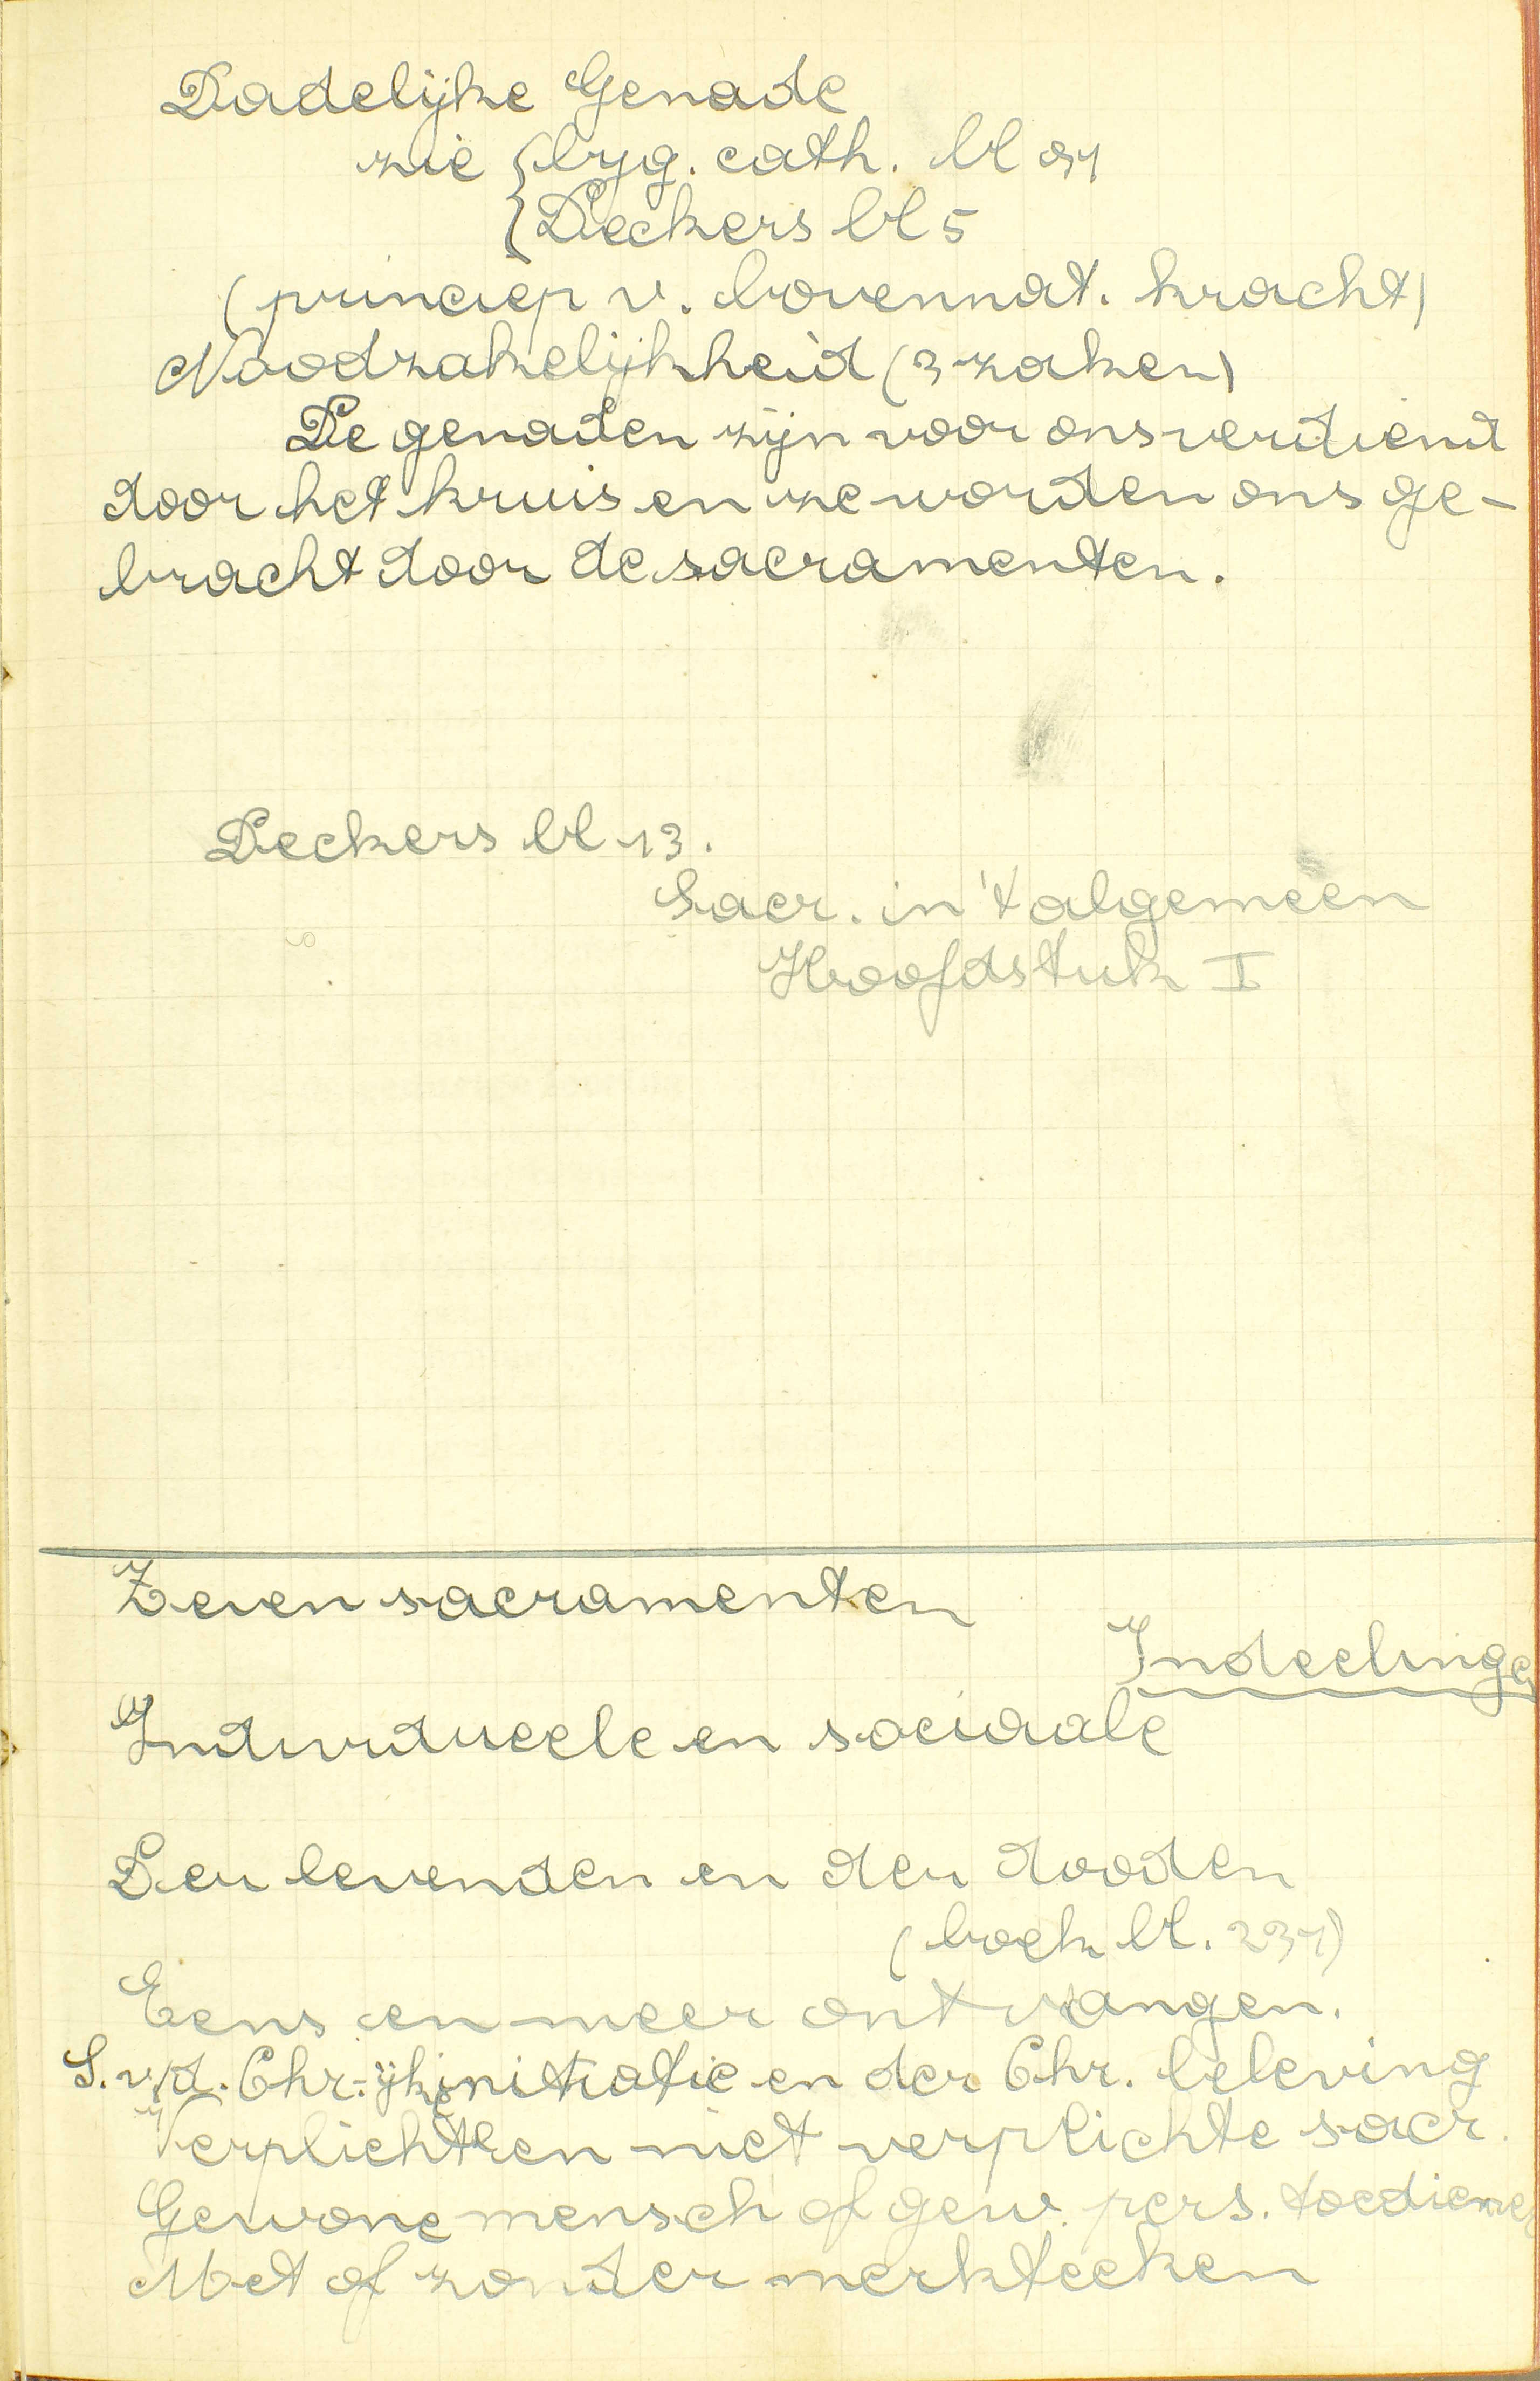 Dadelijke Genade
zie { byg. cath. bl 91
{ Deckers bl 5
(princiep v. bovennat. kracht)
Noodzakelijkheid (3 zaken)
De genaden zijn voor ons verdiend
door het kruis en ze worden ons ge-
bracht door de sacramenten.
Deckers bl 13.
Sacr. in 't algemeen
Hoofdstuk I
Zeven sacramenten
Indeelinge
Individueele en sociaale
Der levenden en der dooden
(boek bl. 231)
Eens en meer ontvangen.
S. v/d. Chr. initiatie en der Chr. beleving
Verplichte en niet verplichte sacr.
Gewone mensch of gew. pers. toediene
Met of zonder merkteeken